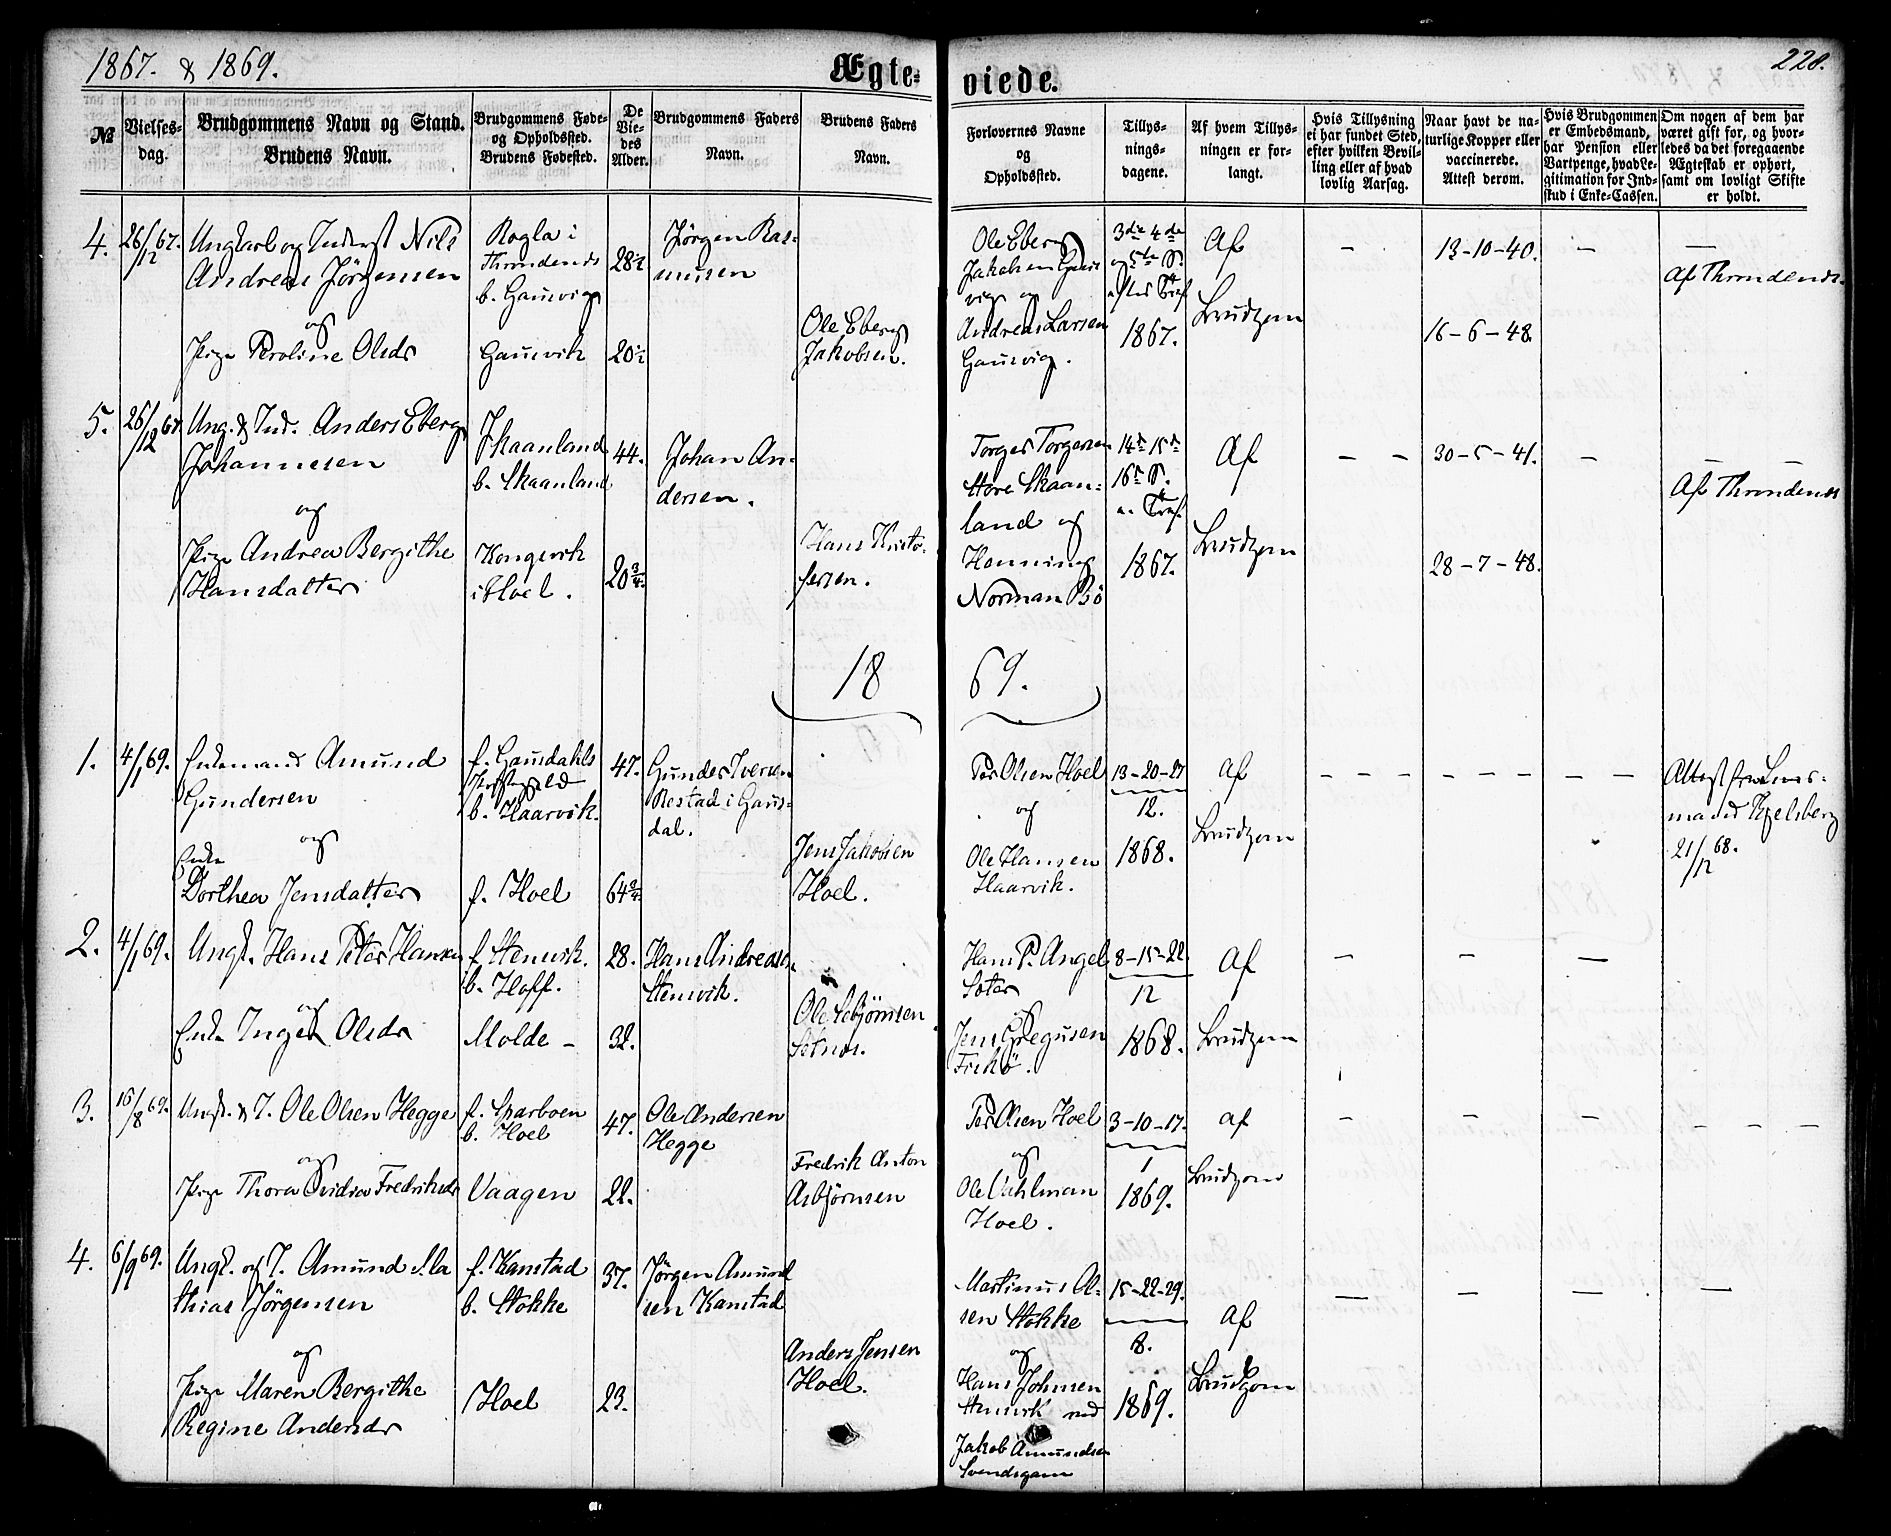 1867. & 1869.
Ægte-
viede.
228.
№
Vielses-
dag.
Brudgommens Navn og Stand.
Brudens Navn.
Brudgommens Føde-
og Opholdssted.
Brudens Fødested.
De
Vie-
des
Alder.
Brudgommens Faders
Navn.
Brudens Faders
Navn.
Forlovernes Navne
og
Opholdssted.
Tillys-
nings-
dagene.
Af hvem Tillys-
ningen er for-
langt.
Hvis Tillysning
ei har fundet Sted,
efter hvilken Bevil-
ling eller af hvad
lovlig Aarsag.
Naar havt de na-
turlige Kopper eller
vaccinerede.
Attest derom.
Hvis Brudgommen
er Embedsmand,
har Pension eller
Vartpenge, hvad Le-
gitimation for Ind-
skud i Enke-Cassen.
Om nogen af dem har
været gift før, og hvor-
ledes da det foregaaende
Ægteskab er ophørt,
samt om lovligt Skifte
er holdt.
4.
26/12 67.
Ungkarl og Inderst Nils
Andreas Jörgensen
og
Pige Peroline Olsdr
Rogla i
Throndenes
b. Gausvig
Gausvik
28½
20½
Jörgen Ras-
mussen
Ole Eberg
Jakobsen.
Ole Eberg
Jakobsen Gaus
vig og
Andreas Larsen
Gausvig.
3die 4de
og 5te S.
efter Tref.
1867.
Af
Brudgom
-
13-10-40.
16-6-48.
-
-
Af Throndenes.
5.
26/12 67
Ung. & Ind. Anders Eberg
Johannesen
og
Pige Andrea Bergithe
Hansdatter
f. Skaanland
b. Skaanland
Kongsvik
i Hoel.
44.
20¾.
Johan An-
dersen.
Hans Kristo-
fersen.
Torger Torgersen
Store Skaan-
land og
Henning
Norman Bö
14de 15de
16de S.
e. Tref.
1867.
Af
Brudgom
- -
30-5-41.
28-7-48.
-
- -
Af Throndenes
18 69.
1.
4/1 69.
Enkemand Amund
Gundersen
og
Enke
Dorthea Jensdatter
f. Gausdahls
Præstegjeld
b. Haarvik.
f. Hoel
47.
64¾
Gunder Iversen
Restad i Gaus-
dal.
Jens Jakobsen
Hoel.
Per Olsen Hoel
og
Ole Hansen
Haarvik.
13-20-27
12.
1868.
Af
Brudgom
- - - - - - - - -
Attest fra Lens-
mand Kjelsberg
21/12 68.
2.
4/1 69.
Ungk. Hans Peter Hansen
og
Enke Inger Olsdr
f. Stensvik.
b. Hoff.
Molde -
28.
32.
Hans Andreasen
Stensvik.
Ole Esbjörnsen
Hans P. Angel
Soter
og
Jens Gregusen
8-15-22
12
1868.
Af
Brudgom
-
-
-
3.
16/8 69.
Ungk. & I. Ole Olsen Hegge
og
Pige Thora Ovidia Fredriksdr
f. Sparboen
b. Hoel
Vaagen
47.
22.
Ole Andersen
Hegge
Fredrik Anton
Asbjörnsen
Per Olsen Hoel
og
Ole Vahlman
Hoel.
3-10-17.
1869.
af
Brudgom
-
-
-
- - -
4.
6/9 69.
Ungk. og I. Amund Ma
thias Jörgensen
og
Pige Maren Bergithe
Regine Andersdr
f. Kanstad
b. Stokke
Hoel
37.
23.
Jörgen Amund
sen Kanstad
Anders Jensen
Hoel.
Martinus Ol-
sen Stokke
og
Hans Johnsen
Stensvik ved
Jakob Amundsen
15-22-29.
8.
1869.
Af
Brudgom
-
-
-
-